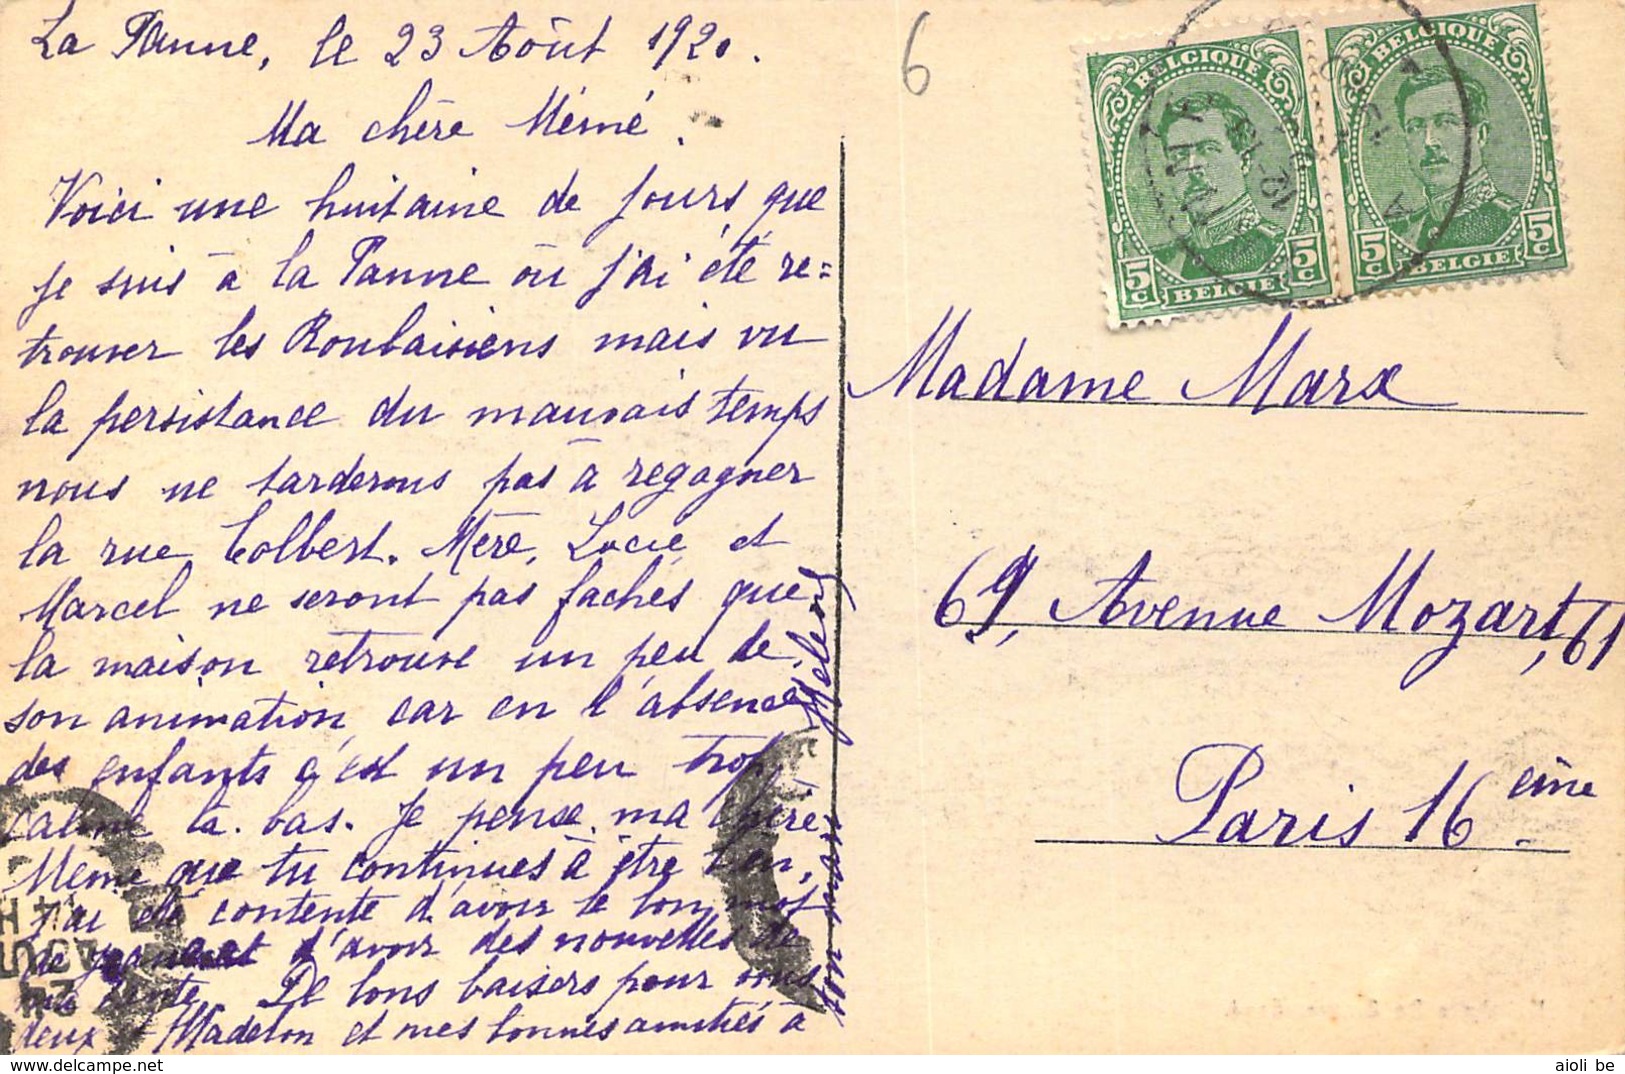 La Panne, le 23 Août 1920.
Ma chère Mémé.
Voici une huitaine de jours que
je suis à la Panne où j'ai été re=
trouver les Roubaisiens mais vu
la persistance du mauvais temps
nous ne tarderons pas à regagner
la rue Colbert. Mère, Lucie et
Marcel ne seront pas fachés que
la maison retrouve un peu de
son animation, car en l'absence
des enfants c'est un peu trop
calme là-bas. Je pense ma chère
Mémé que tu continues à être bien,
j'ai été contente d'avoir le bon mot
de et d'avoir des nouvelles de
ma tante. De bons baisers pour vous
deux Madelon et mes bonnes amitiés à
ton mari
Hélène
6
BELGIQUE
5 C
5 C
BELGIE
BELGIQUE
5 C
5 C
BELGIE
Madame Marx
69, Avenue Mozart, 61
Paris 16 eme
aioli be